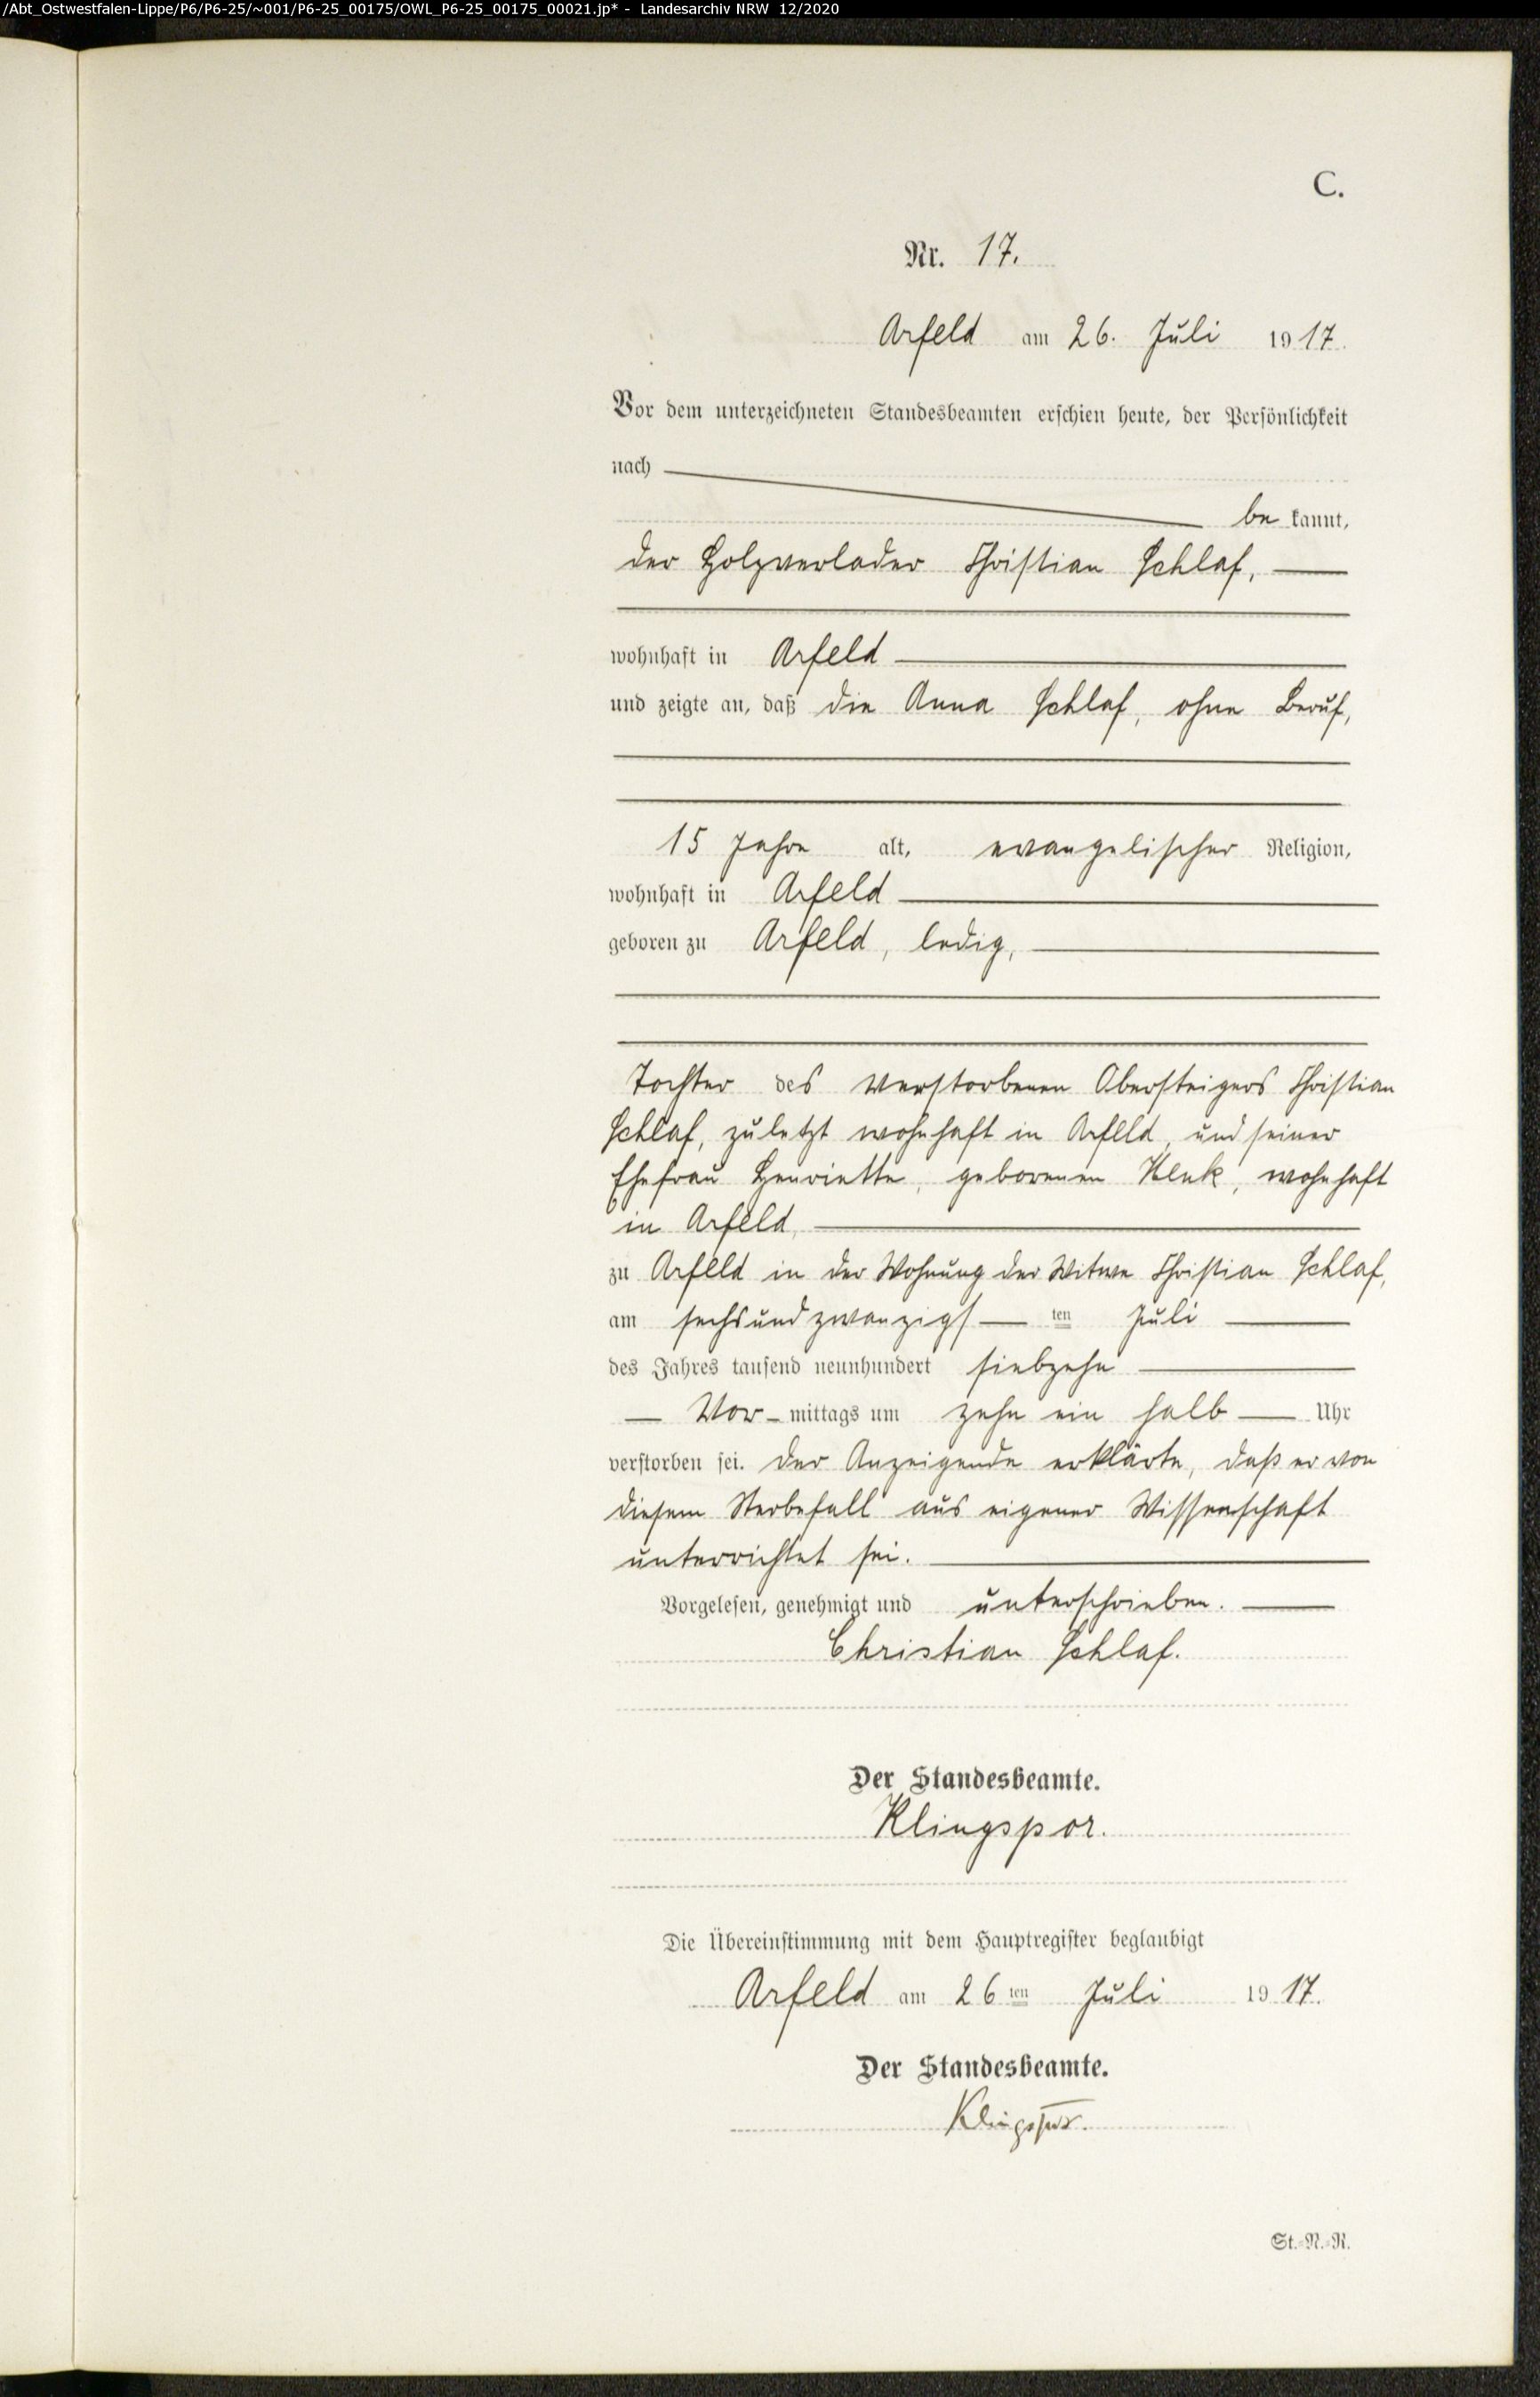 /Abt_Ostwestfalen-Lippe/P6/P6-25/~001/P6-25_00175/OWL_P6-25_00175_00021.jp* - Landesarchiv NRW 12/2020
C.
Nr. 17.
Arfeld am 26. Juli 1917.
Vor dem unterzeichneten Standesbeamten erschien heute, der Persönlichkeit
nach
be kannt,
der Holzverlader Christian Schlaf,
wohnhaft in Arfeld
und zeigte an, daß die Anna Schlaf, ohne Beruf,
15 Jahre alt, evangelischer Religion,
wohnhaft in Arfeld
geboren zu Arfeld, ledig,
Tochter des verstorbenen Obersteigers Christian
Schlaf, zuletzt wohnhaft in Arfeld, und seiner
Ehefrau Henriette, geborenen Klenk, wohnhaft
in Arfeld,
zu Arfeld in der Wohnung der Witwe Christian Schlaf,
am sechsundzwanzigs ten Juli
des Jahres tausend neunhundert siebzehn
Vor-mittags um zehn ein halb Uhr
verstorben sei. Der Anzeigende erklärte, daß er von
diesem Sterbefall aus eigener Wissenschaft
unterrichtet sei.
Vorgelesen, genehmigt und unterschrieben.
Christian Schlaf.
Der Standesbeamte.
Klingspor.
Die Übereinstimmung mit dem Hauptregister beglaubigt
Arfeld am 26 ten Juli 1917.
Der Standesbeamte.
Klingspor.
St.-N.-R.